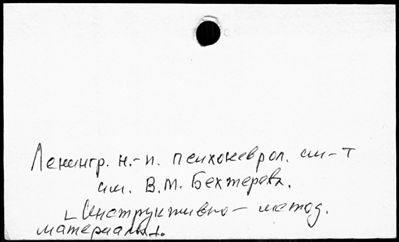 Ленингр. н.-п. психоневрол. ин-т
им. В.М. Бехтерева.
Инструктивно-метод.
материалы.